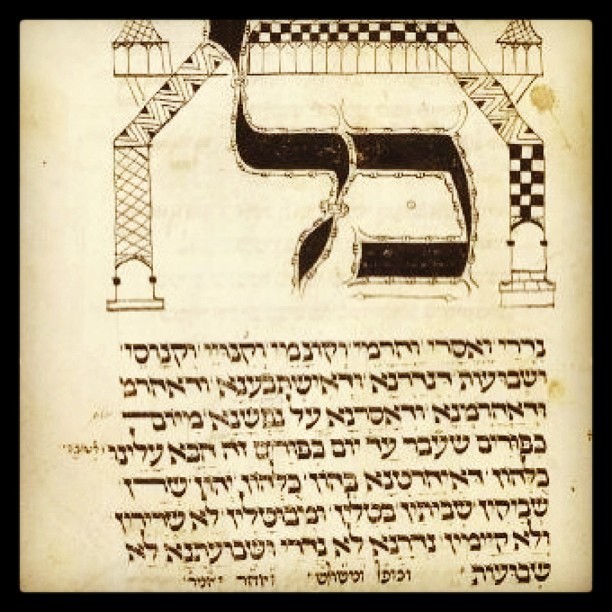 כל
נדרי ואסרי וחרמי וקונמי וקנויי וקנוסי
ושבועות דנדרנא ודאישתבענא ודאחרימ
ודאחרמנא ודאסרנא על נפשנא מיום
כפורים שעבר עד יום כפורים זה הבא עלינו
כלהון דאיחרטנא בהון כלהון יהון שרן
שביקין שביתין בטלין ומבוטלין לא שרירין
ולא קיימין נדרנא לא נדרי ושבועתנא לא
שבועות